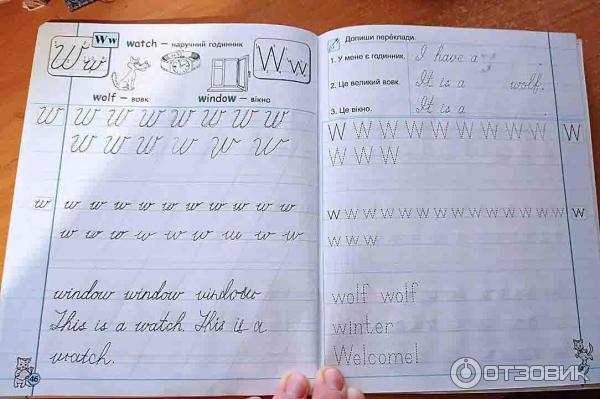 Ww
Ww
watch – наручний годинник
Ww
wolf – вовк
window – вікно
W W W W W W W W
W W W W W W
w w w w w w w w w w w
w w w w w w w w w
window window window
This is a watch. This is a
watch.
46
Допиши переклади.
1. У мене є годинник. I have a .
2. Це великий вовк. It is a wolf.
3. Це вікно. It is a .
W W W W W W W W W W W
W W W
w w w w w w w w w w w w w w w
w w w
wolf wolf
winter
Welcome!
ОТЗОВИК